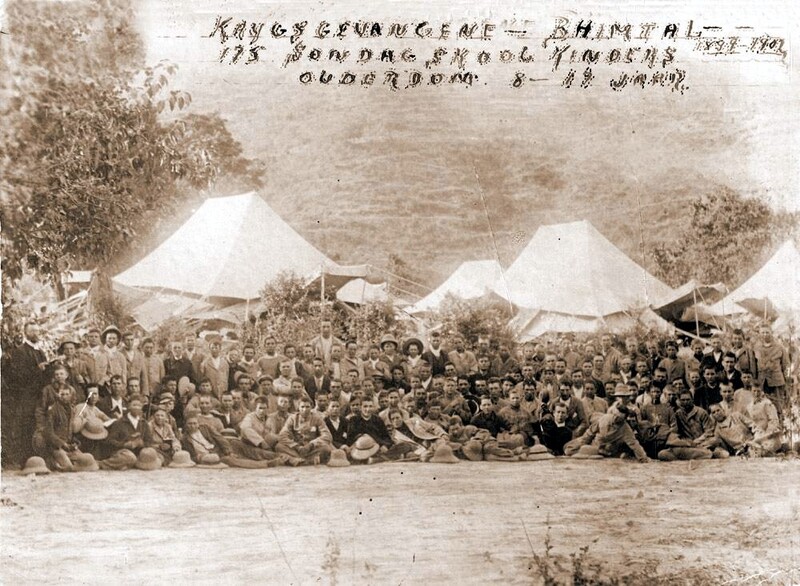 KRYGSGEVANGENE – BHIMTAL – 1899-1902
175 SONDAG SKOOL KINDERS
OUDERDOM 8 – 18 JAAR.